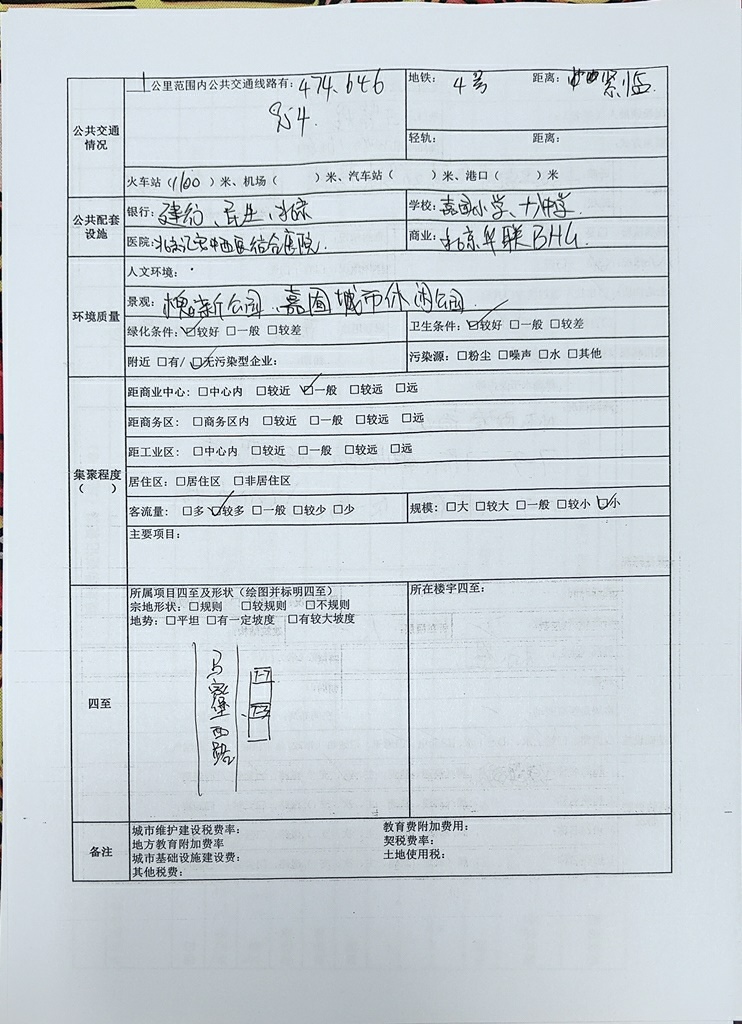 1公里范围内公共交通线路有：474、646
地铁： 4号 距离： 紧临
公共交通情况
轻轨： 距离：
火车站（1100）米、机场（ ）米、汽车站（ ）米、港口（ ）米
公共配套设施
银行：建行、民生、北京
学校：嘉园小学、十八中学
医院：北京汇安中西医结合医院
商业：北京华联BHG
环境质量
人文环境：
景观：槐新公园、嘉园城市休闲公园
绿化条件：☑较好 □一般 □较差
卫生条件：☑较好 □一般 □较差
附近 □有/ ☑无污染型企业：
污染源：□粉尘 □噪声 □水 □其他
集聚程度（ ）
距商业中心：□中心内 □较近 ☑一般 □较远 □远
距商务区：□商务区内 □较近 □一般 □较远 □远
距工业区：□中心内 □较近 □一般 □较远 □远
居住区：□居住区 □非居住区
客流量：□多 ☑较多 □一般 □较少 □少
规模：□大 □较大 □一般 □较小 ☑小
主要项目：
四至
所属项目四至及形状（绘图并标明四至）
宗地形状：□规则 □较规则 □不规则
地势：□平坦 □有一定坡度 □有较大坡度
所在楼宇四至：
马家堡西路
备注
城市维护建设税费率：
教育费附加费用：
地方教育附加费率：
契税费率：
城市基础设施建设费：
土地使用税：
其他税费：